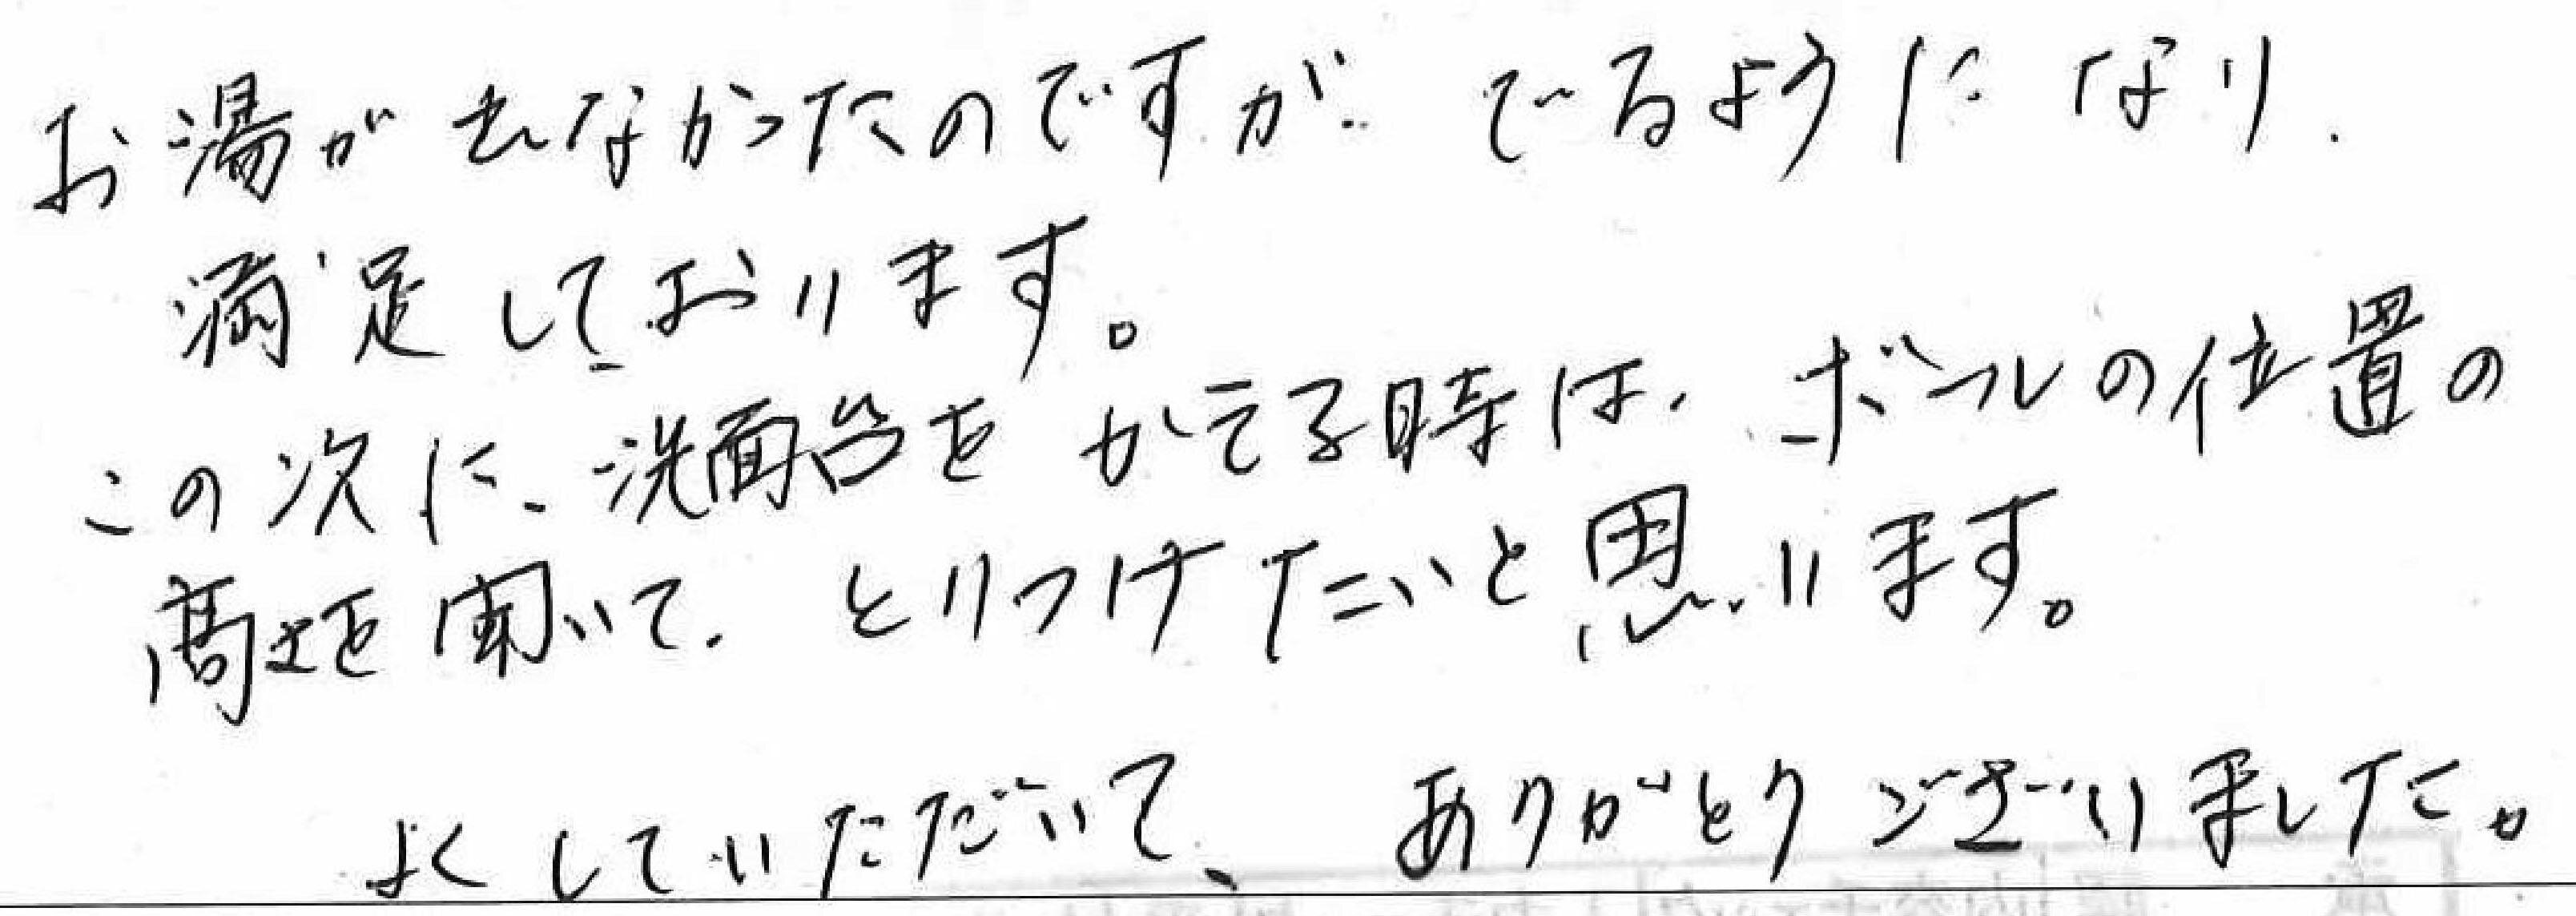 お湯がでなかったのですが、でるようになり、
満足しております。
この次に、洗面台をかえる時は、ボールの位置の
高さを聞いて、とりつけたいと思います。
よくしていただいて、ありがとうございました。